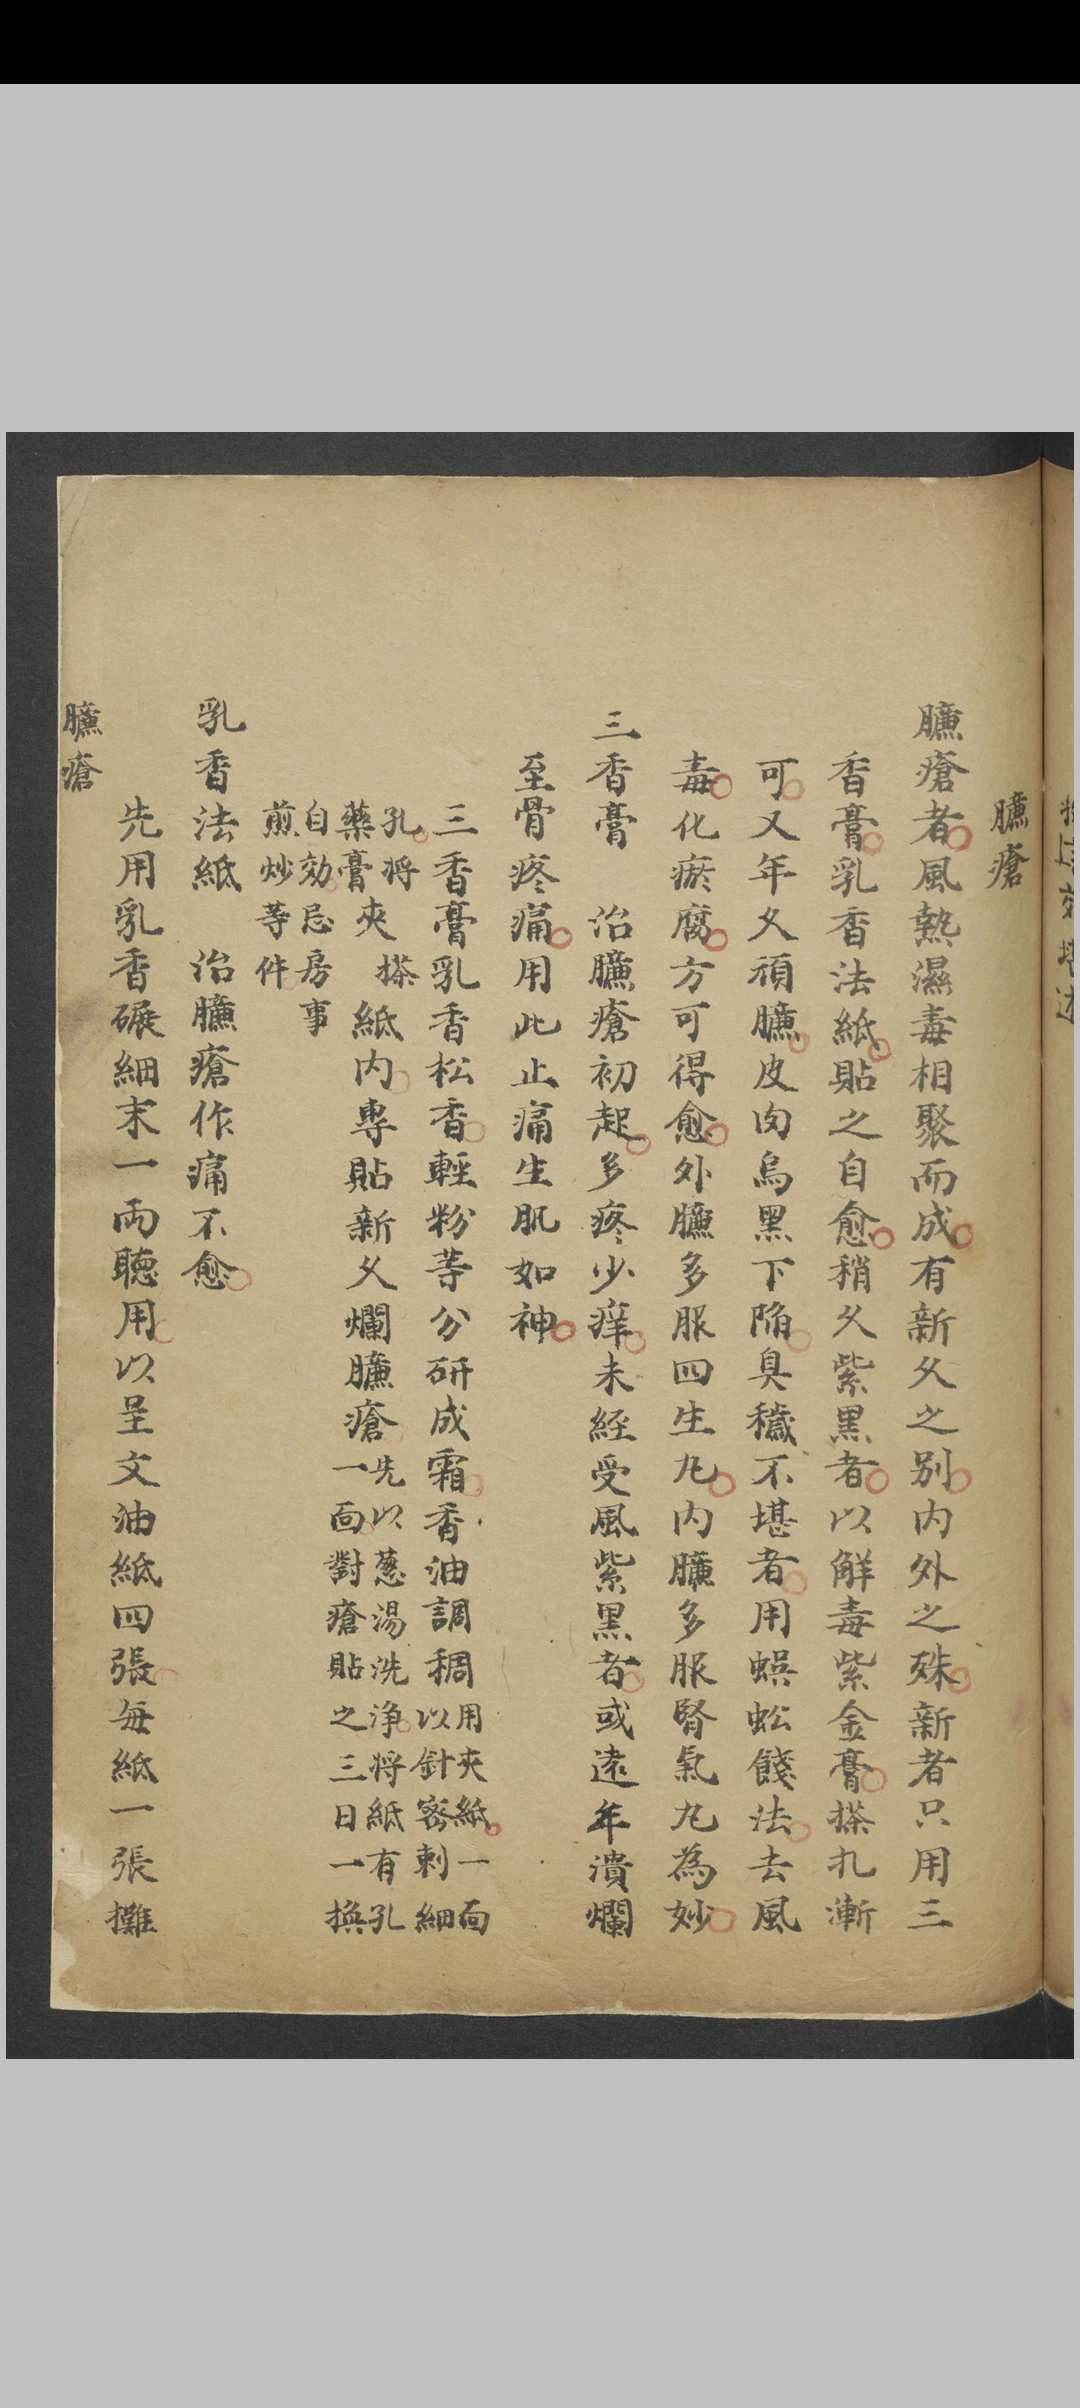 臁瘡
臁瘡者風熱濕毒相聚而成有新久之別内外之殊新者只用三
香膏乳香法紙貼之自愈稍久紫黑者以解毒紫金膏搽扎漸
可又年久頑臁皮肉烏黑下陷臭穢不堪者用蜈蚣餞法去風
毒化瘀腐方可得愈外臁多服四生丸内臁多服腎氣丸為妙
三香膏 治臁瘡初起多疼少痒未經受風紫黑者或遠年潰爛
至骨疼痛用此止痛生肌如神
三香膏乳香松香輕粉等分研成霜香油調稠
用夾紙一面
以針密刺細
孔將搽
藥膏夾
紙内專貼新久爛臁瘡
先以葱湯洗浄將紙有孔
一面對瘡貼之三日一換
自効忌房事
煎炒等件
乳香法紙 治臁瘡作痛不愈
先用乳香碾細末一両聴用以呈文油紙四張每紙一張攤
臁瘡